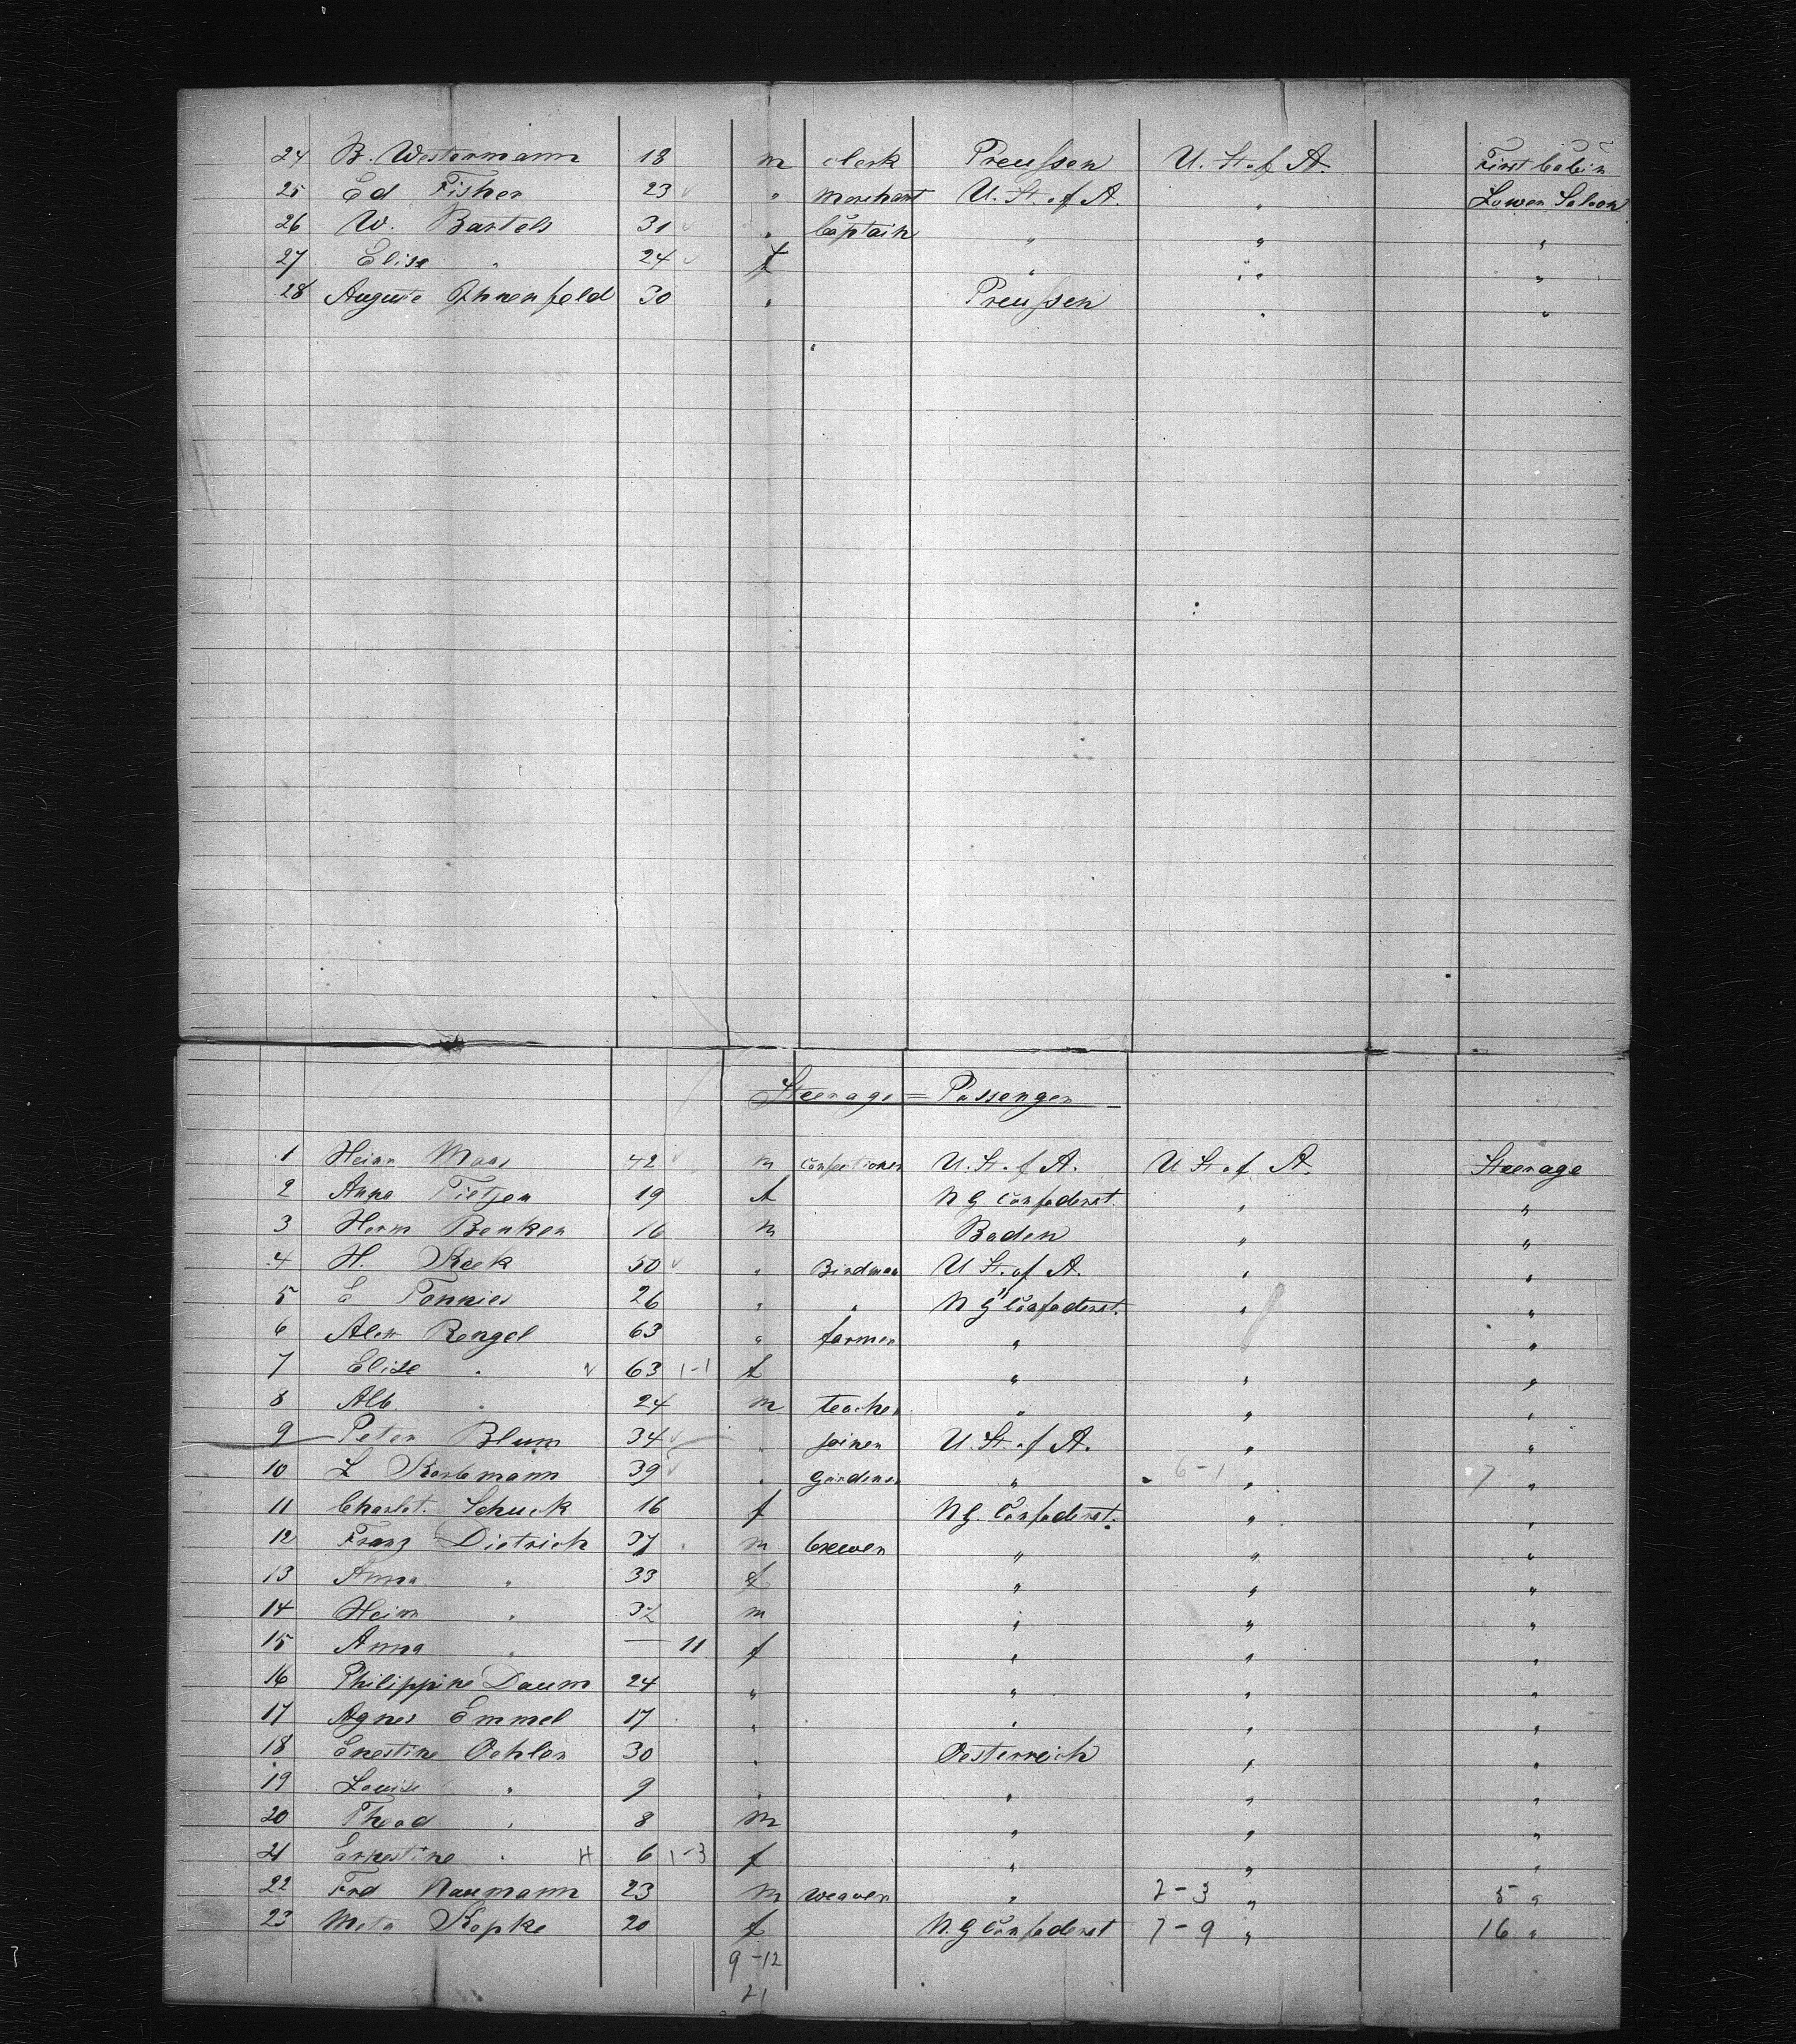 24 B. Westermann 18 m clerk Preußen U. St. of A. First Cabin
25 Ed Fisher 23 " Merchant U. St. of A. " Lower Saloon
26 W. Bartels 31 " Captain " " "
27 Elise " 24 f " " "
28 Auguste Ohnenfeld 30 " Preußen " "
Steerage = Passenger
1 Heinr Maas 42 m Confectioner U. St. of A. U. St. of A. Steerage
2 Anna Tietjen 19 f N G Confederat. " "
3 Herm Benken 16 m Baden " "
4 H. Keek 50 " Birdman U St. of A. " "
5 E Tonnies 26 " " N G Confederat. " "
6 Alex Rengel 63 " farmer " " "
7 Elise " 63 1-1 f " " "
8 Alb. " 24 m teacher " " "
9 Peter Blum 34 " joiner U. St. of A. " "
10 L 39 " Gardener " 6-1 " 7 "
11 Charlot. Schuck 16 f N G. Confederat. " "
12 Franz Dietrich 37 m brewer " " "
13 Anna " 33 f " " "
14 Hein " 32 m " " "
15 Anna " — 11 f " " "
16 Philippine Daum 24 " " " "
17 Agnes Emmel 17 " " " "
18 Enestine Oehler 30 " Oesterreich " "
19 Louise " 9 " " " "
20 Theod " 8 m " " "
21 Ernestine " H 6 1-3 f " " "
22 Frd Naumann 23 m weaver " 2-3 " 5 "
23 Meta Kopke 20 f N. G Confederat 7-9 " 16 "
9-12
21